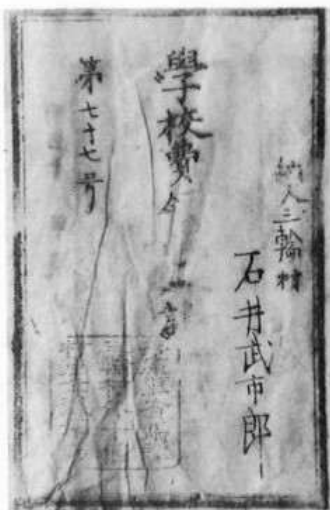 納人三輪村
石井武市郎
學校費金
第七十七号